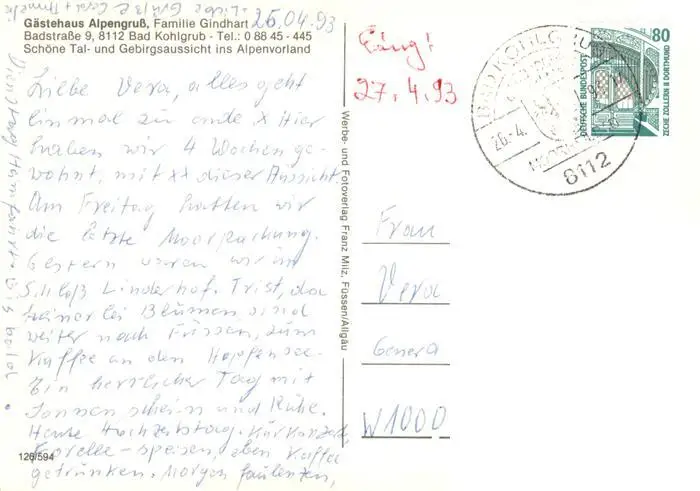 Gästehaus Alpengruß, Familie Gindhart
Badstraße 9, 8112 Bad Kohlgrub - Tel.: 0 88 45 - 445
Schöne Tal- und Gebirgsaussicht ins Alpenvorland
26.04.93
Liebe Vera, alles geht
einmal zu ende x Hier
haben wir 4 Wochen ge-
wohnt, mit xx dieser Aussicht
Am Freitag hatten wir
die letzte Moorpackung.
Gestern waren wir in
Schloß Linderhof. Trist, da
keinerlei Blumen sind
weiter nach Füssen, zum
Kaffee an den Hopfensee.
Ein herrlicher Tag mit
Sonnenschein und Ruhe.
Heute Hochzeitstag. Kurkonzert,
Forelle-speisen, eben Kaffee
getrunken. Morgen faulenzen,
Dienstag Heimfahrt. Bis bald.
Liebe Grüße
126/594
Werbe- und Fotoverlag Franz Milz, Füssen/Allgäu
Eing!
27.4.93
BAD KOHLGRUB
26.-4.
8112
80
DEUTSCHE BUNDESPOST
ZECHE ZOLLERN II DORTMUND
Frau
Vera
Genera
W 1000